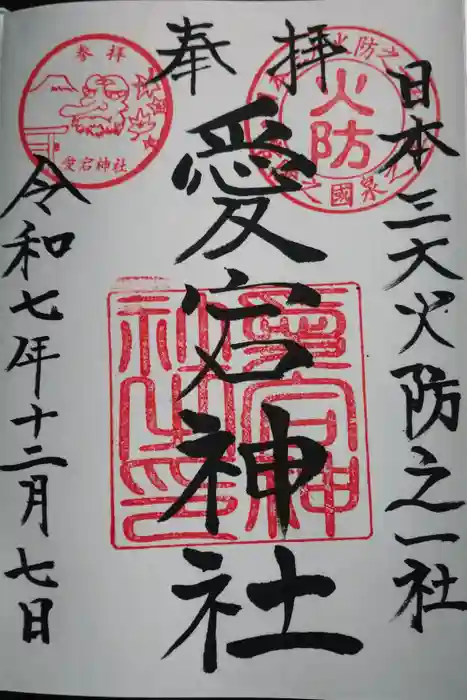 日本三大火防之一社
奉拝
愛宕神社
令和七年十二月七日
火防
参拝
愛宕神社
愛宕神
社之印